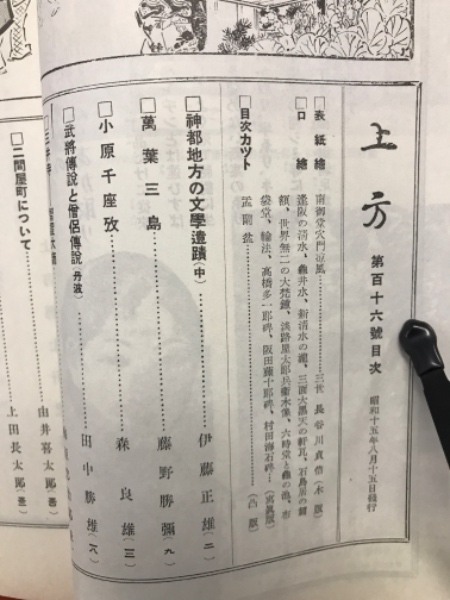 上方 第百十六號目次 昭和十五年八月十五日發行
□表紙繪 南御堂穴門涼風……三世 長谷川貞信(木版)
□口繪 逢阪の清水、龜井水、新清水の瀧、三面大黑天の軒瓦、石鳥居の額
額、世界無二の大梵鐘、淡路屋太郎兵衞木像、六時堂と龜の池、
袋堂、輪法、高橋多一郎碑、阪田藤十郎碑、村田海石碑…(寫眞版)
□目次カット 盂蘭盆……(凸版)
□神都地方の文學遺蹟(中)……伊藤正雄(二)
□萬葉三島……藤野勝彌(九)
□小原千座攷……森良雄(三)
□武將傳說と僧侶傳說(丹波)……田中勝雄(六)
由井喜太郎
□二間屋町について……上田長太郎